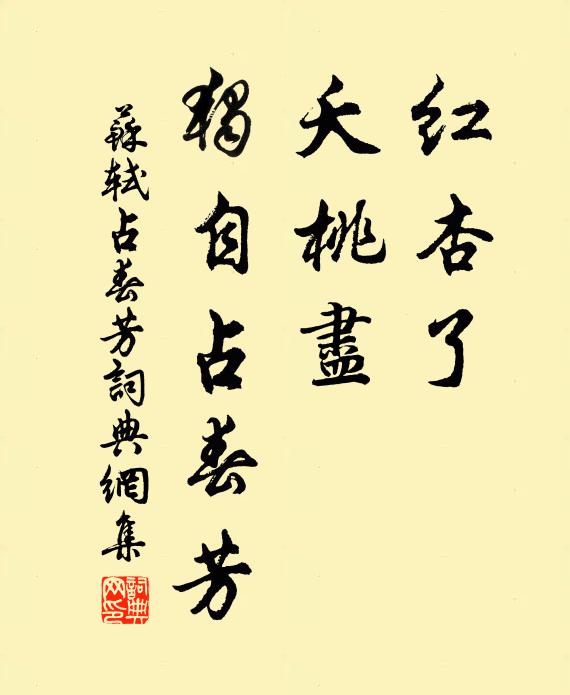 紅杏了
夭桃盡
獨自占春芳
蘇軾占春芳詞典網集
詞典网印